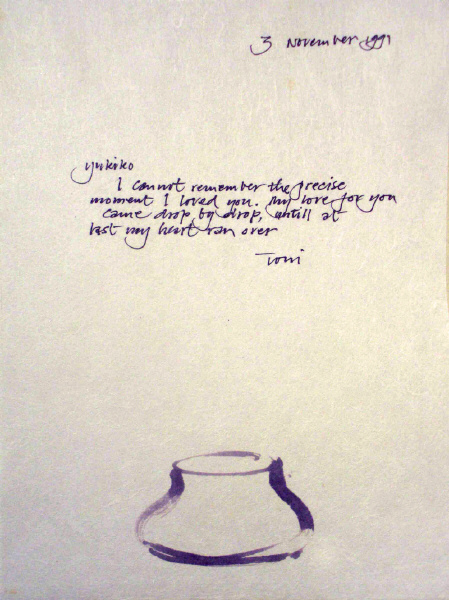 3 November 1991
yukiko
I cannot remember the precise
moment I loved you. My love for you
came drop by drop, untill at
last my heart ran over
Toni